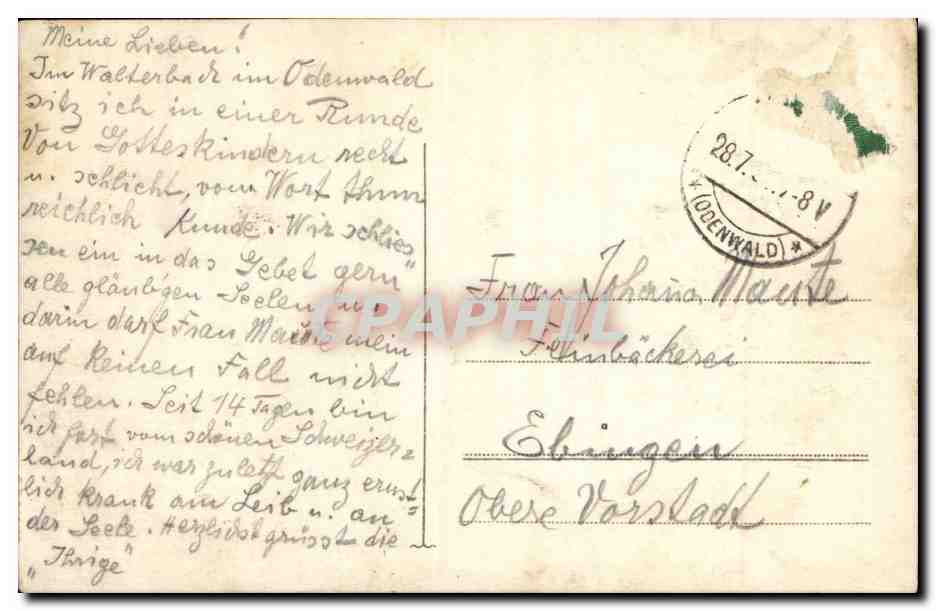 Meine Lieben!
Im Walterbach im Odenwald
sitz ich in einer Runde
Von Gotteskindern recht
u. schlicht, vom Wort thun
reichlich Kunde. Wir schlies
sen ein in das Gebet gern
alle gläub'gen Seelen nu
darin darf Frau Maute mein
auf keinen Fall nicht
fehlen. Seit 14 Tagen bin
ich fort vom schönen Schweizer=
land, ich war zuletzt ganz ernst=
lich krank am Leib u. an
der Seele. Herzlichst grüsst die
„Ihrige"
28.7. 7-8 V
* (ODENWALD) *
Frau Johana Maute
Feinbäckerei
Ebingen
Obere Vorstadt
CPAPHIL